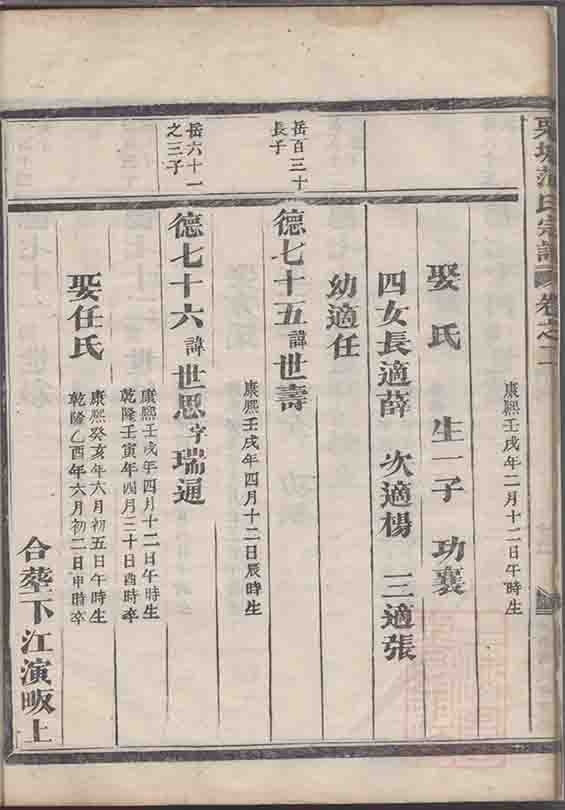 康熙壬戌年二月十二日午時生
娶氏 生一子 功襄
四女長適薛 次適楊 三適張
幼適任
岳百三十
長子
德七十五諱世壽
康熙壬戌年四月十二日辰時生
岳六十一
之三子
德七十六諱世思字瑞通
康熙壬戌年四月十二日午時生
乾隆壬寅年四月三十日酉時卒
娶任氏
康熙癸亥年六月初五日午時生
乾隆乙酉年六月初二日申時卒
合葬下江演畈上